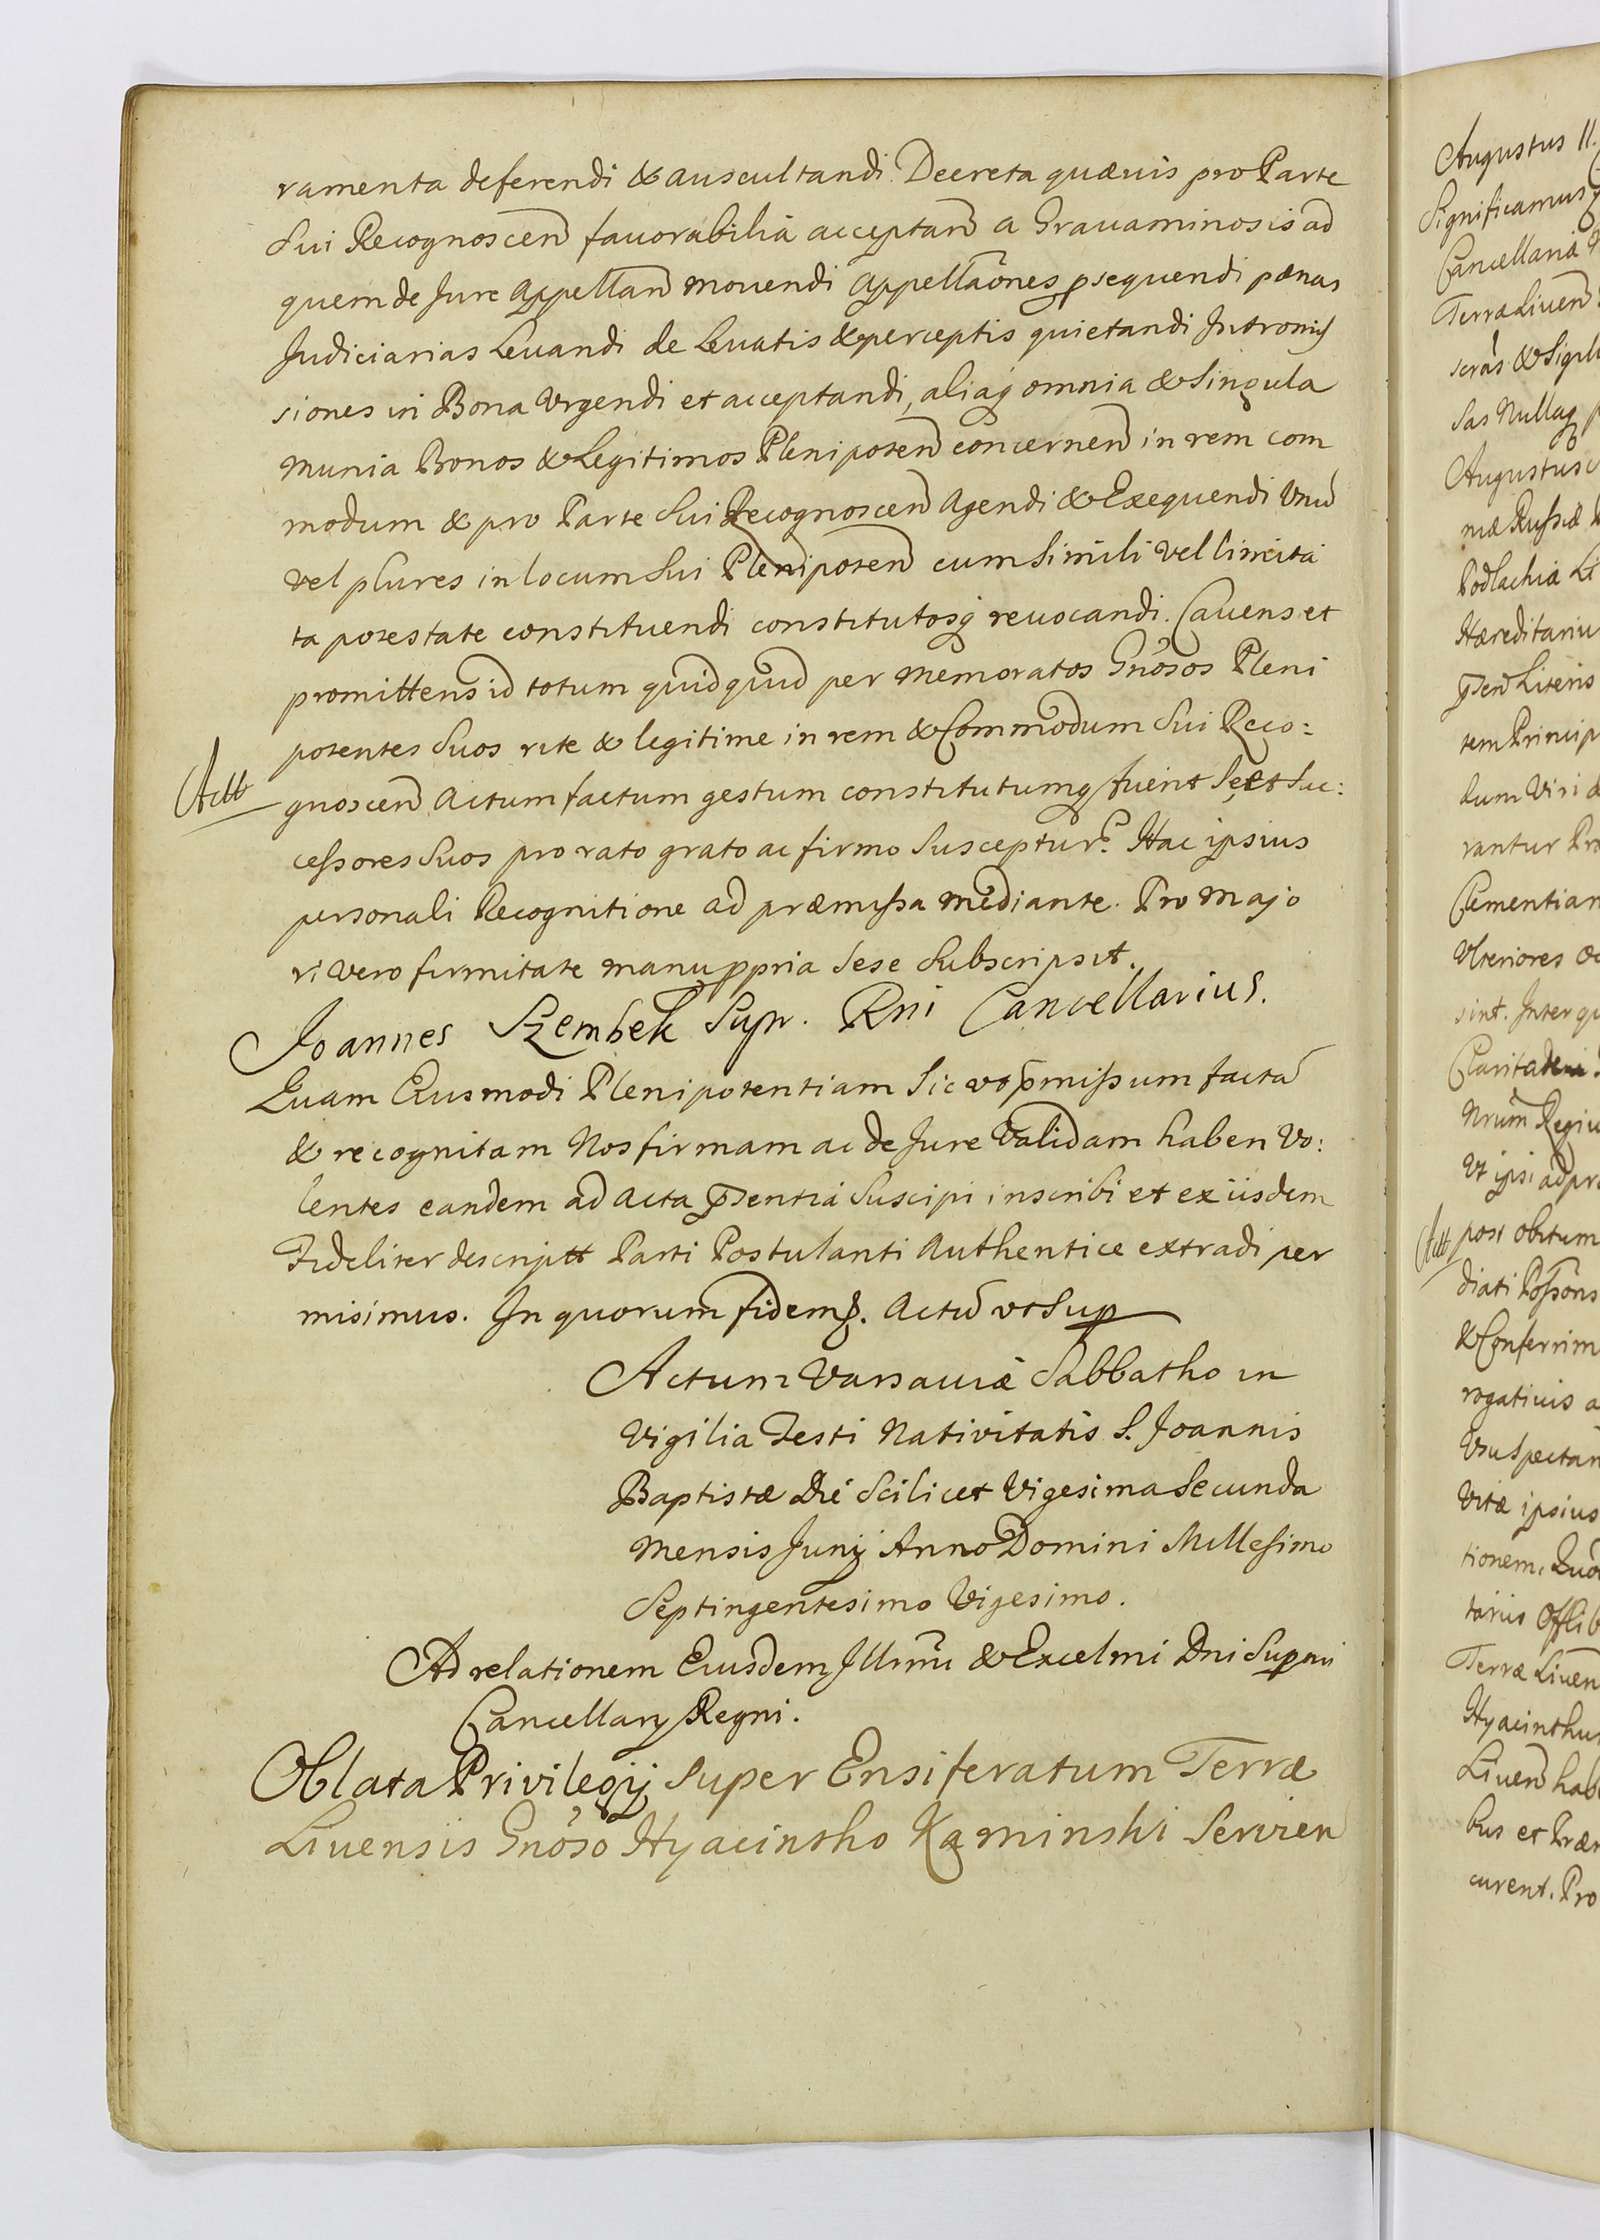 ramenta deferendi & auscultandi Decreta quævis pro Parte
Sui Recognoscen favorabilia acceptan a Gravaminosis ad
quem de Jure Appellan movendi Appellaōnes psequendi pænas
Judiciarias Levandi de Levatis & perceptis quietandi Intromis
siones in Bona Vrgendi et acceptandi, aliaq omnia & Singula
munia Bonos & Legitimos Plenipoten concernen in rem com
modum & pro Parte Sui Recognoscen Agendi & Exequendi Vnū
vel plures in locum Sui Plenipoten cum Simili vel limita
ta potestate constituendi constitutosq revocandi. Cavens et
promittens id totum quidquid per memoratos Gnōsos Pleni
potentes Suos rite & legitime in rem & Commodum Sui Reco:
Actt
gnoscen Actum factum gestum constitutumq fuerit Se et Suc:
cessores Suos pro rato grato ac firmo Suscepturū. Hac ipsius
personali Recognitione ad præmissa mediante. Pro majo
ri vero firmitate manu ppria Sese Subscripsit.
Joannes Szembek Supr. Rni Cancellarius.
Quam Eiusmodi Plenipotentiam Sic vt pmissum factā
& recognitam Nos firmam ac de Jure Validam haben Vo:
lentes eandem ad Acta pñsentia Suscipi inscribi et ex iisdem
Fideliter descriptt Parti Postulanti Authentice extradi per
misimus. In quorum fidem. Actū vt Sup
Actum Varsaviæ Sabbatho in
Vigilia Festi Nativitatis S. Joannis
Baptistæ Die Scilicet Vigesima Secunda
Mensis Junij Anno Domini Millesimo
Septingentesimo Vigesimo.
Ad relationem Eiusdem Illmi & Excelmi Dni Supmi
Cancellarij Regni.
Oblata Privilegij Super Ensiferatum Terræ
Livensis Gnōso Hyacintho Kaminski Servien
Augustus II.
Significamus
Cancellaria
Terræ Liven
& Sigill
Sas Nullaq
Augustus
niæ Russiæ
Podlachiæ Li
Hæreditariu
pñsen Literis
tem Princip
dum Viri
rantur Pro
Clementiam
Vlteriores
sint. Inter qu
Nrum Regiu
Vt ipsi ad pr
Actt
post obitum
diati Possōns
& Conferrim
rogativis a
Vsu Spectan
Vitæ ipsius
tionem. Quo
Terræ Liven
Hyacinthu
Liven hab
bus et Præ
curent. Pro